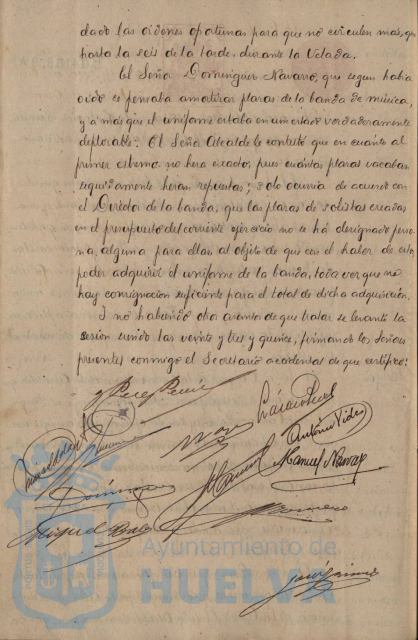 dado las órdenes oportunas para que no circulen mas, que
hasta la seis de la tarde, durante la Velada.
El Señor Dominguez Navarro, que segun habia
oido se pensaba amortizar plazas de la banda de música,
y a más que el uniforme estaba en un estado verdaderamente
deplorable. El Señor Alcalde le contestó que en cuanto al
primer extremo no hera exacto, pues cuántas plazas vacaban
seguidamente heran repuestas; solo ocurria de acuerdo con
el Director de la banda, que las plazas de solistas creadas
en el presupuesto del corriente ejercicio no se há designado perso-
na alguna para ellas al objeto de que con el haber de estos
poder adquirir el uniforme de la banda, toda vez que no
hay consignacion suficiente para el total de dicha adquisición.
Y no habiendo otro asunto de que tratar se levantó la
sesión siendo las veinte y tres y quince, firmando los Señores
presentes conmigo el Secretario accidental de que certifico:
Antonio Vides
Manuel Navarro
Dominguez
Miguel
Romero
José
Ayuntamiento de
HUELVA